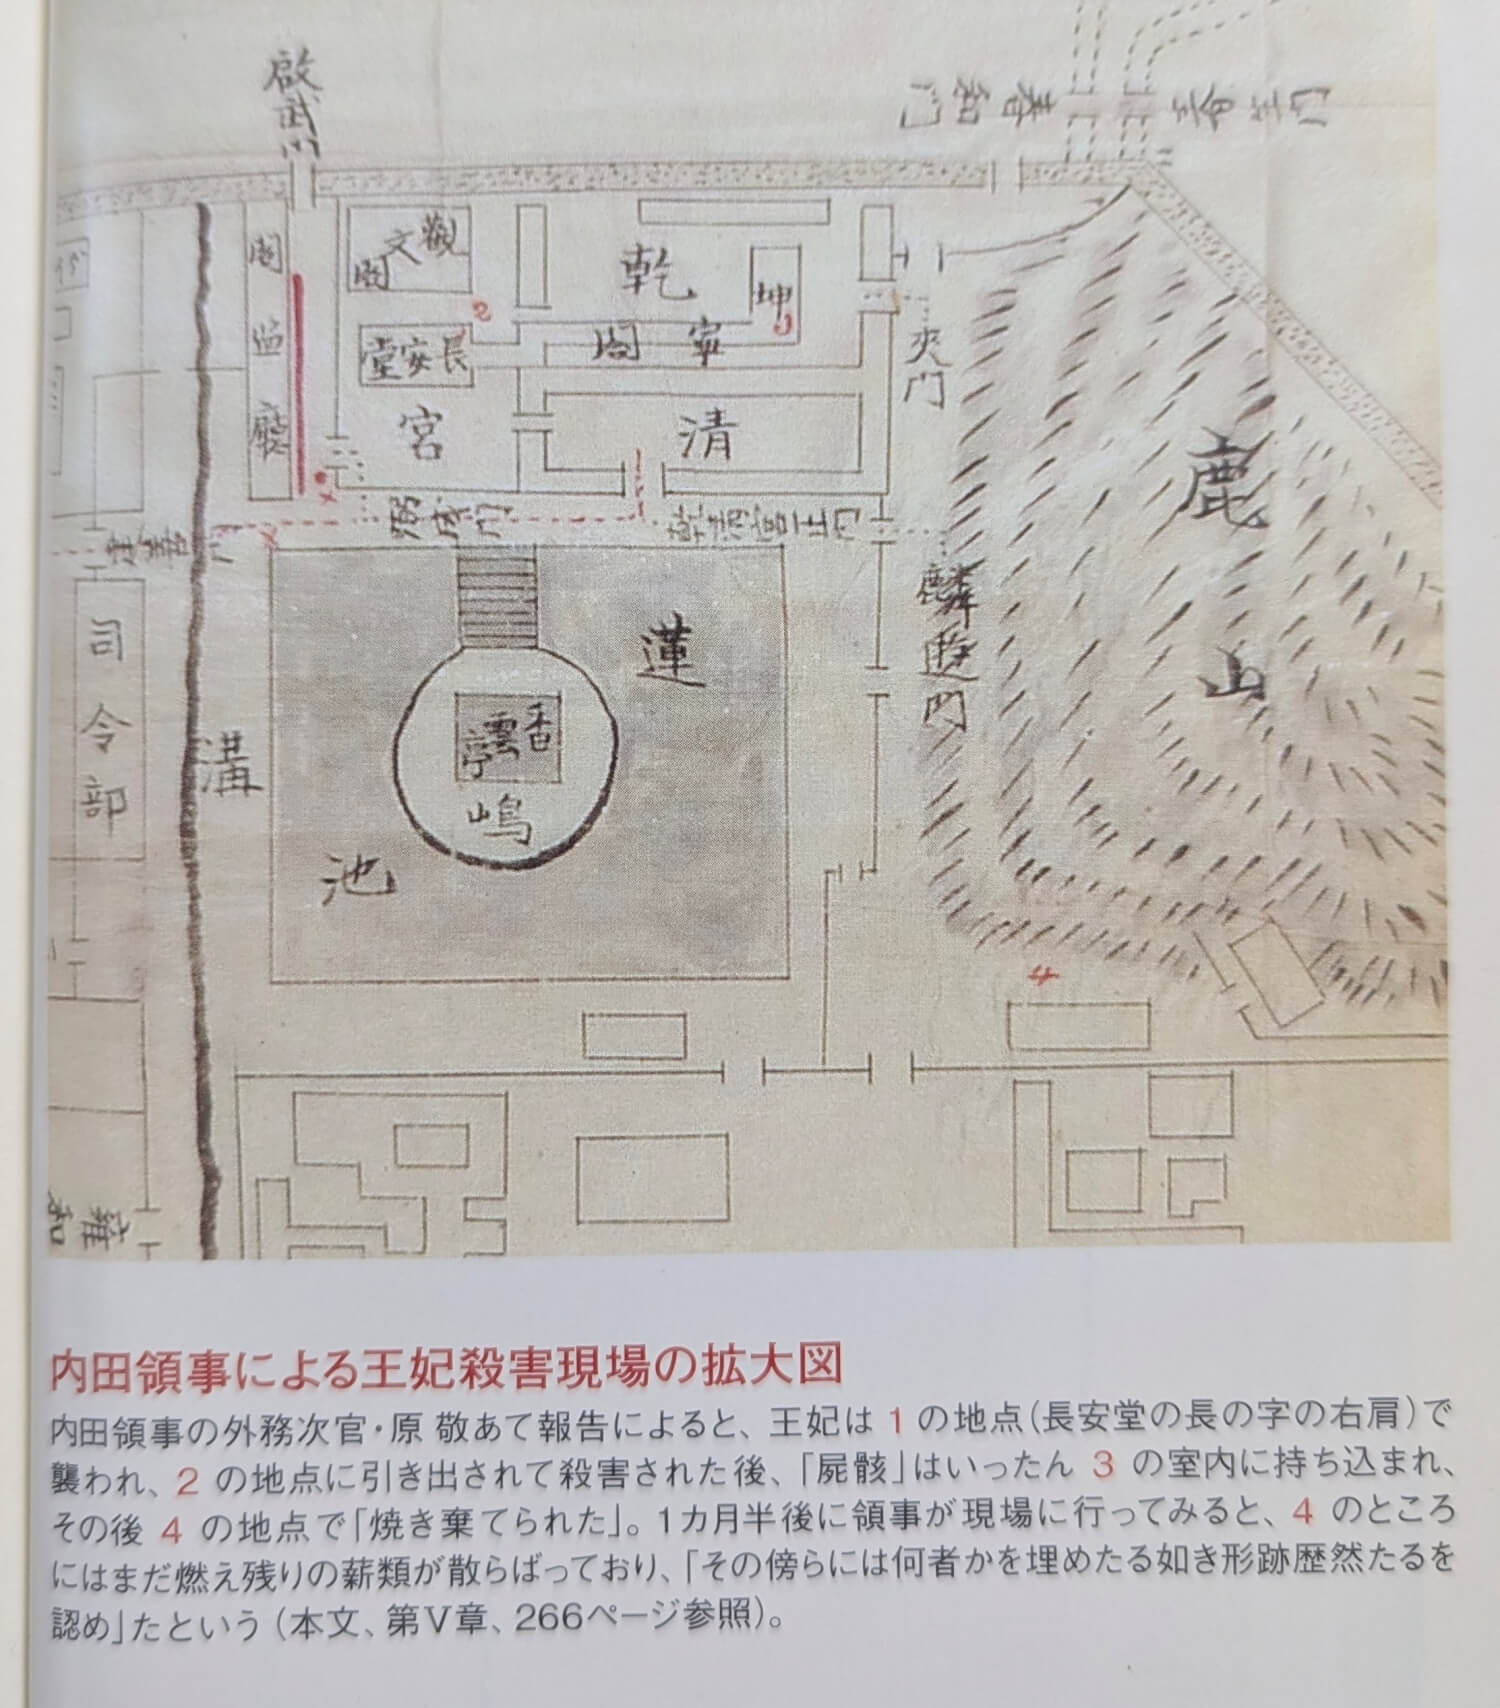 啟武門
春和門
觀文閣
乾
坤
閣監廳
長安堂
寧閣
夾門
宮
清
鹿山
弼成門
麟遊門
蓮
司令部
溝
香雲亭
嶋
池
2
3
4
雍和
内田領事による王妃殺害現場の拡大図
内田領事の外務次官・原 敬あて報告によると、王妃は 1 の地点(長安堂の長の字の右肩)で
襲われ、2 の地点に引き出されて殺害された後、「屍骸」はいったん 3 の室内に持ち込まれ、
その後 4 の地点で「焼き棄てられた」。1カ月半後に領事が現場に行ってみると、4 のところ
にはまだ燃え残りの薪類が散らばっており、「その傍らには何者かを埋めたる如き形跡歴然たるを
認め」たという (本文、第Ⅴ章、266ページ参照)。